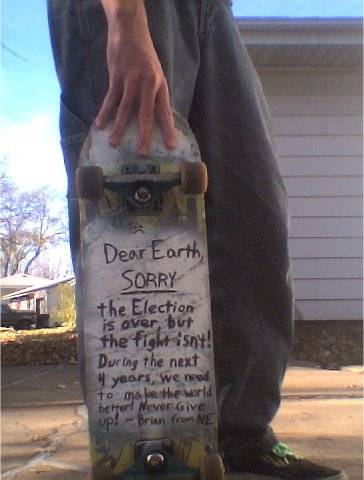 Dear Earth,
SORRY
the Election
is over, but
the fight isn't!
During the next
4 years, we need
to make the world
better! Never Give
up! ~ Brian from NE